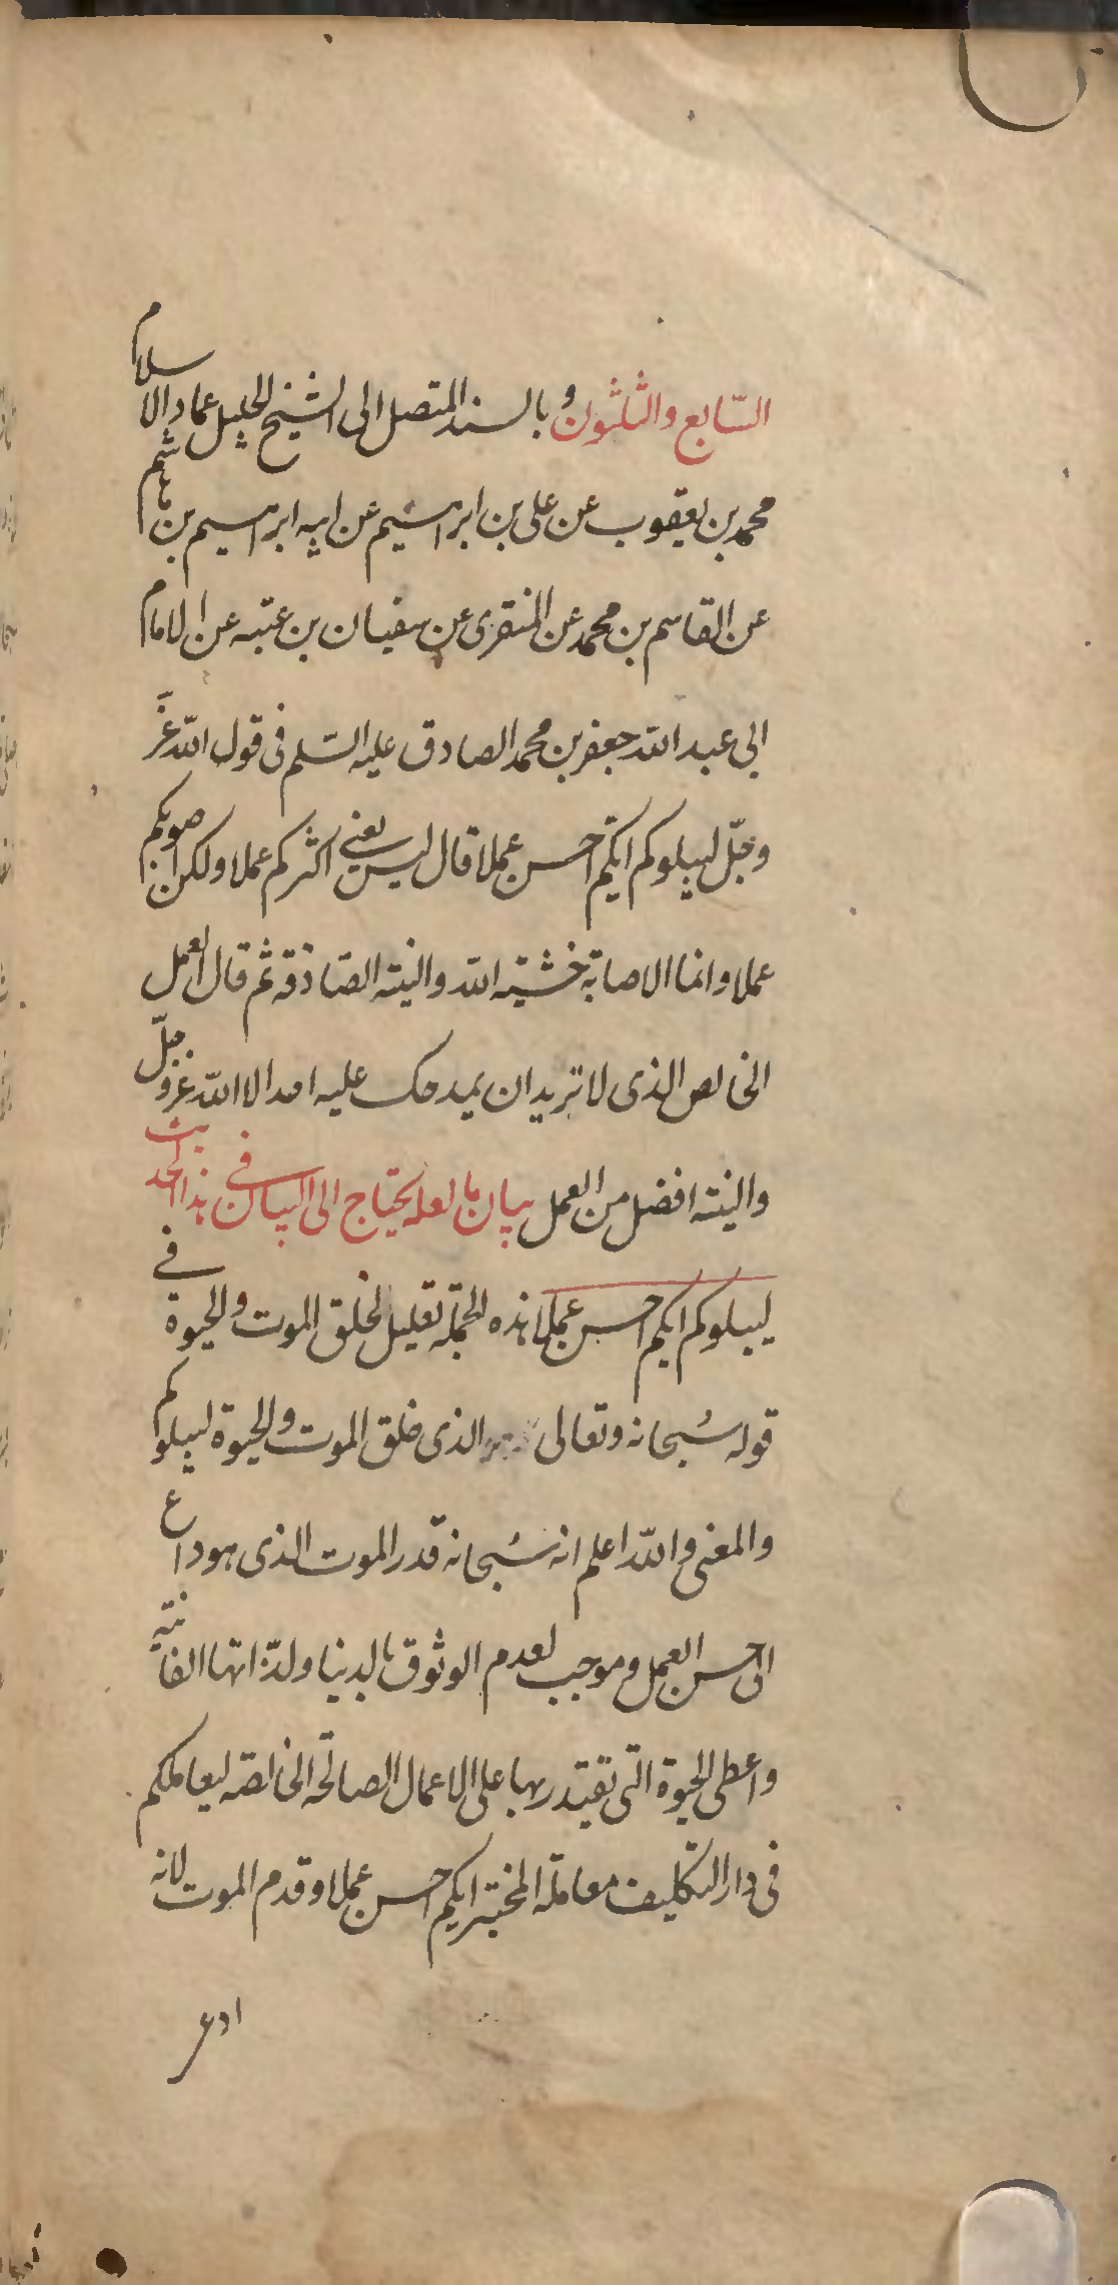 السّابع والثلثون وبالسند المتصل الى الشيخ الجليل عماد الاسلام
محمد بن يعقوب عن على بن ابراهيم عن ابيه ابراهيم بن هاشم
عن القاسم بن محمد عن المنقرى عن سفيان بن عتبه عن الامام
ابى عبد الله جعفر بن محمد الصادق عليه السّلم فى قول الله عزّ
وجلّ ليبلوكم ايّكم احسن عملا قال ليس يعنى اكثركم عملا ولكن اصوبكم
عملا وانما الاصابة خشية الله والنية الصادقة ثم قال العمل
الخالص الذى لا تريد ان يمدحك عليه احد الا الله عز وجلّ
والنية افضل من العمل بيان ما لعله يحتاج الى البيان فى هذا الحديث
ليبلوكم ايكم احسن عملا هذه الجملة تعليل لخلق الموت والحيوة فى
قوله سُبحانه وتعالى الذى خلق الموت والحيوة ليبلوكم
والمعنى والله اعلم انه سُبحانه قدر الموت الذى هو داع
الى حسن العمل وموجب لعدم الوثوق بالدنيا ولذّاتها الفانيّة
واعطى الحيوة التى تقتدر بها على الاعمال الصالحة الخالصة ليعاملكم
فى دار التكليف معاملة المختبر ايكم احسن عملا وقدم الموت لانه
ادعى